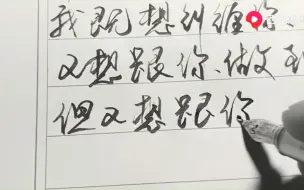 我既想纠缠你、
又想跟你、做
但又想跟你